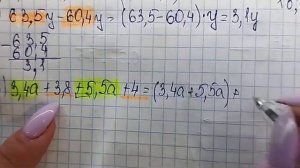 63,5y - 60,4y = (63,5-60,4)·y = 3,1y
63,5
60,4
3,1
3,4a + 3,8 + 5,5a + 4 = (3,4a + 5,5a) +